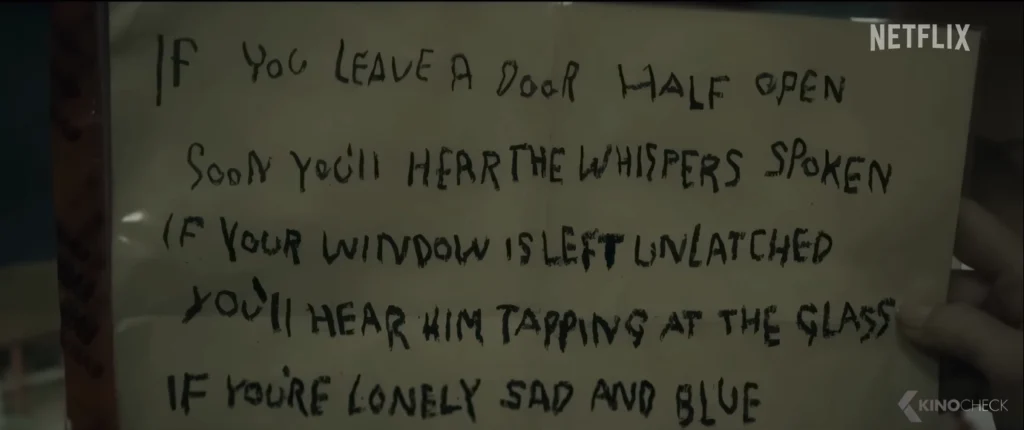 NETFLIX
IF YOU LEAVE A DOOR HALF OPEN
SOON YOU'll HEAR THE WHISPERS SPOKEN
IF YOUR WINDOW IS LEFT UNLATCHED
YOU'll HEAR HIM TAPPING AT THE GLASS
IF YOU'RE LONELY SAD AND BLUE
KINOCHECK